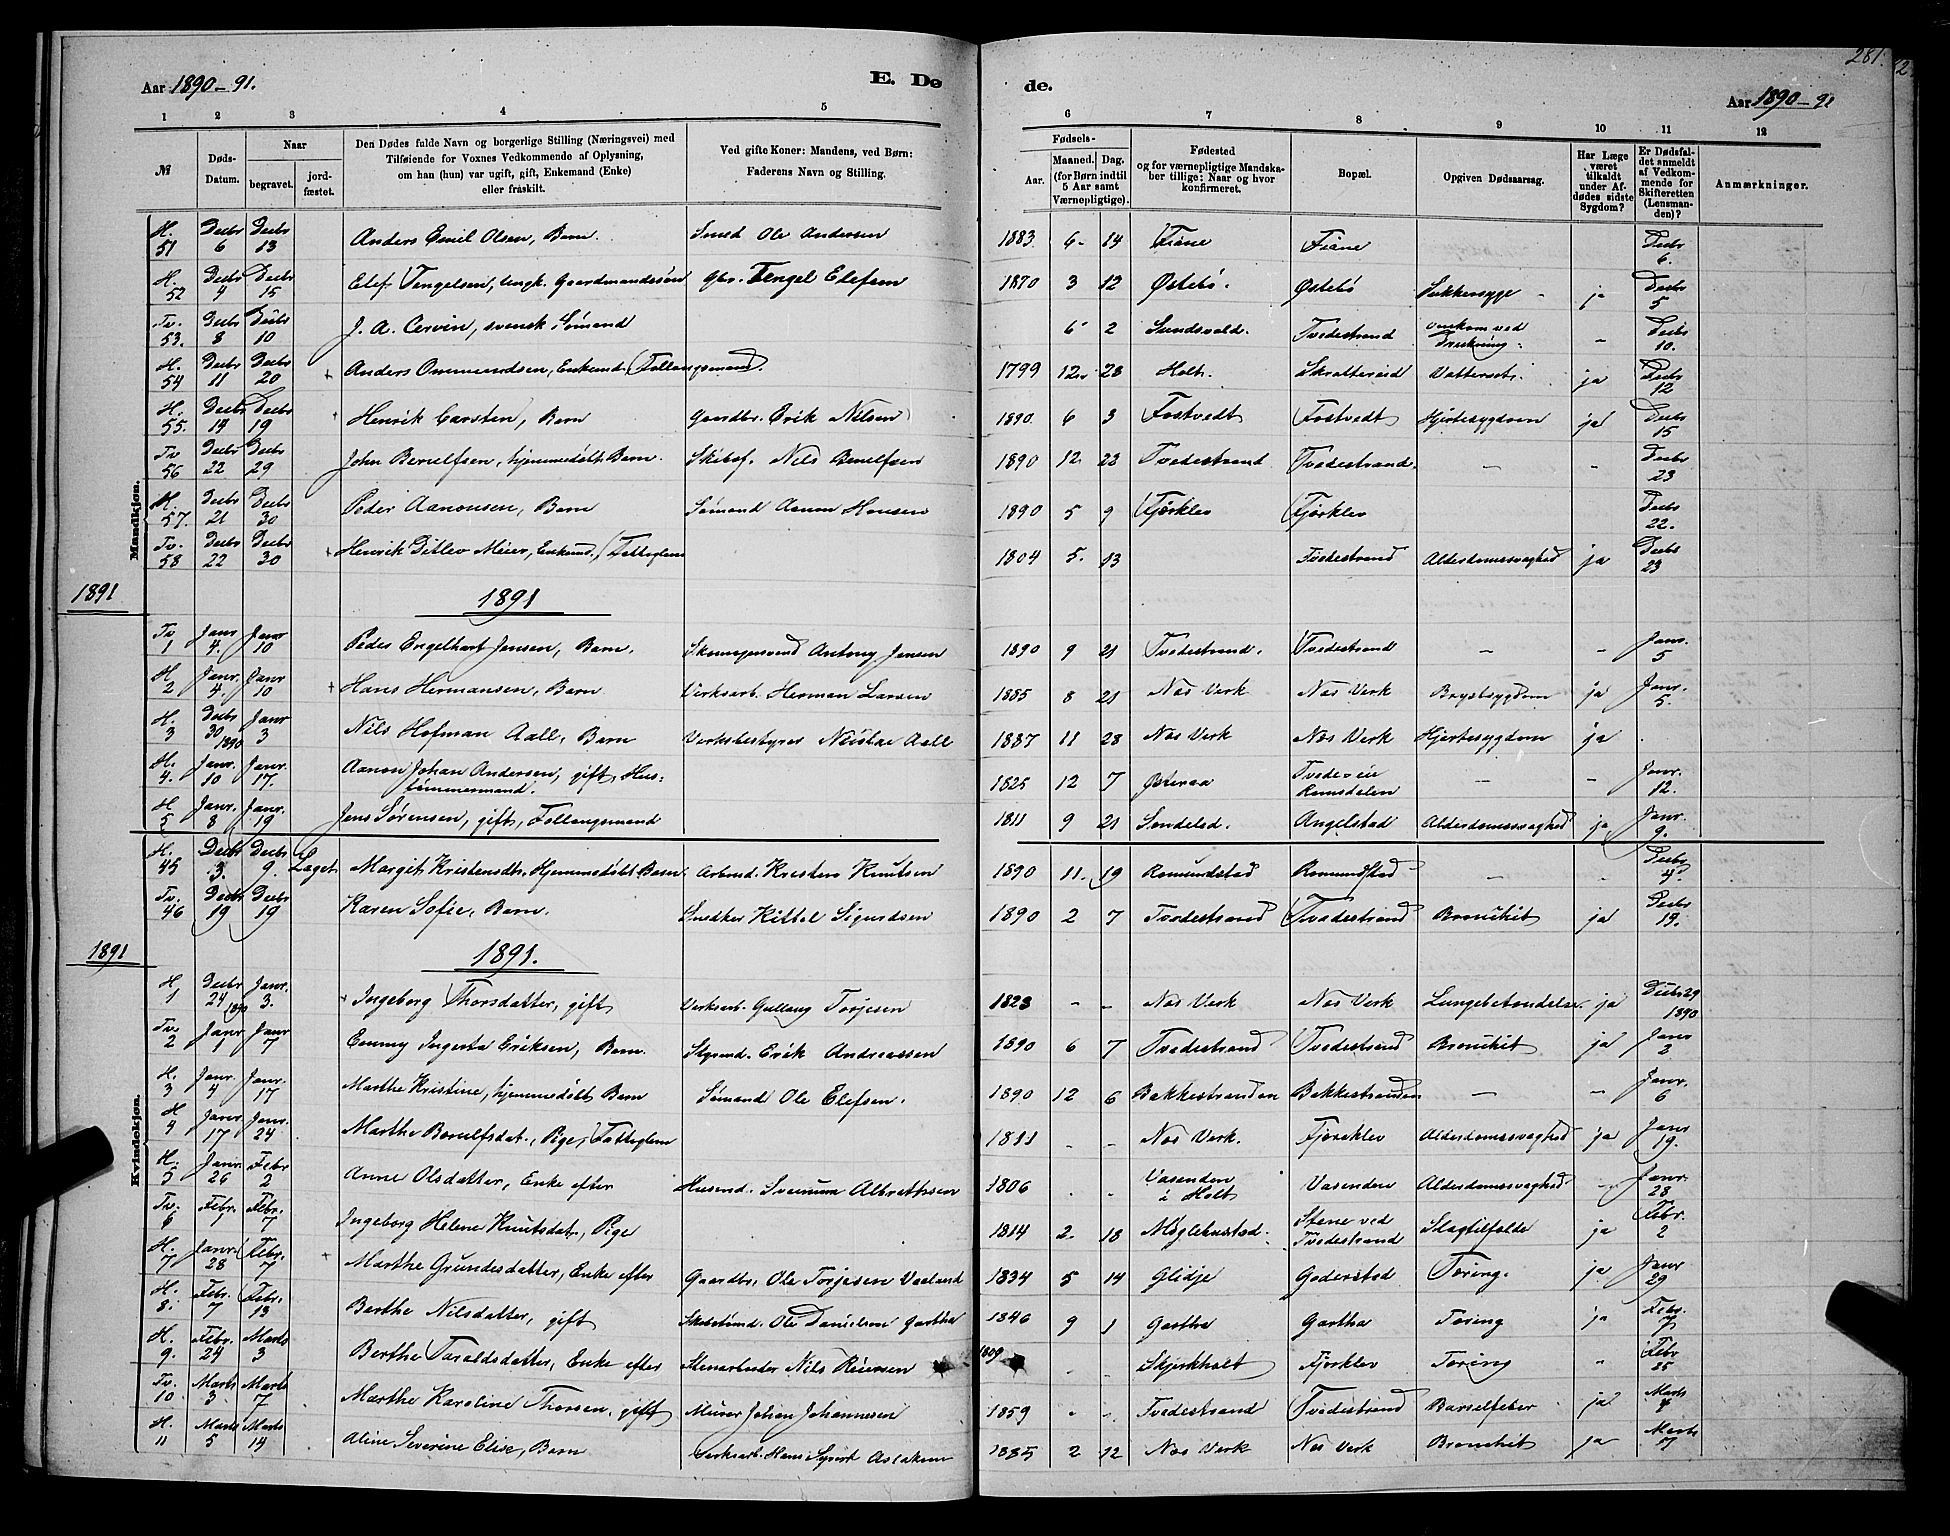 281.
Aar 1890-91. E. Dø de. Aar 1890-91
1 2 3 4 5 6 7 8 9 10 11 12
№ Døds-Datum. Naar begravet. jordfæstet. Den Dødes fulde Navn og borgerlige Stilling (Næringsvei) med Tilføiende for Voxnes Vedkommende af Oplysning, om han (hun) var ugift, gift, Enkemand (Enke) eller fraskilt. Ved gifte Koner: Mandens, ved Børn: Faderens Navn og Stilling. Fødsels- Aar. Maaned. Dag. (for Børn indtil 5 Aar samt Værnepligtige). Fødested og for værnepligtige Mandskaber tillige: Naar og hvor konfirmeret. Bopæl. Opgiven Dødsaarsag. Har Læge været tilkaldt under Afdødes sidste Sygdom? Er Dødsfaldet anmeldt af Vedkommende for Skifteretten (Lensmanden)? Anmærkninger.
Mandkjøn.
H. 51 Decbr 6 Decbr 13 Anders Emil Olsen, Barn. Smed Ole Andersen 1883 6 14 Fiane Fiane Decbr 6.
H. 52 Decbr 4 Decbr 15 Elef Tengelsen, ungk. Gaardmandssøn Gbr. Tengel Elefsen 1870 3 12 Østebø. Østebø Sukkersyge ja Decbr 5
Tv. 53. Decbr 8 Decbr 10 J. A. Cervin, svensk Sømand 6 2 Sundsvald. Tvedestrand omkom ved Drukning. - Decbr 10.
H. 54 Decbr 11 Decbr 20 + Anders Ommundsen, Enkemd. Follaugsmand. 1799 12 28 Holt. Skrattereid Vattersot. ja Decbr 12
H. 55. Decbr 14 Decbr 19 + Henrik Carsten, Barn Gaardbr. Erik Nilsen 1890. 6 3 Fostvedt Fostvedt Hjertesygdom ja Decbr 15
Tv 56 Decbr 22 Decbr 29 John Berulfsen, hjemmedøbt Barn. Skibsf. Nils Berulfsen 1890 12 22 Tvedestrand Tvedestrand. - - Decbr 23
H. 57. Decbr 21 Decbr 30 Peder Aanonsen, Barn Sømand Aanon Hansen 1890 5 9 Fjørklev Fjørklev Decbr 22.
Tv. 58 Decbr 22 Decbr 30 + Henrik Ditlev Meier, Enkemd., Fattiglem 1804 5. 13 Tvedestrand Alderdomssvaghed ja Decbr 23
1891 1891
Tv 1 Janr 4. Janr 10 Peder Engelhart Jensen, Barn. Skomagersvend Antony Jensen 1890 9 21 Tvedestrand. Tvedestrand - - Janr. 5
H 2 Janr. 4. Janr 10 + Hans Hermansen, Barn Verksarb. Herman Larsen 1885 8 21 Nes Verk Nes Verk Brystsygdom ja Janr. 5.
H. 3 Decbr 30 1890 Janr 3 Nils Hofman Aall, Barn Verksbestyrer Nicolai Aall 1887 11 28 Nes Verk Nes Verk Hjertesygdom ja
H. 4. Janr. 10 Janr. 17. Aanon Johan Andersen, gift, Hustømmermand. 1825 12 7 Østeraa Tvede-eie Ramsdalen - - Janr. 12.
H 5 Janr. 8 Janr. 19 Jens Sørensen, gift, Follaugsmand 1811 9 21 Søndeled. Angelstad Alderdomssvaghed ja Janr. 9.
Kvindekjøn.
H. 45 Decbr 3. Decbr 9. Laget Margit Kristensdtr. Hjemmedøbt Barn. Arbmd. Kristen Knutsen 1890 11. 19 Romundstad Romundstad - - Decbr 4.
Tv. 46 Decbr 19 Decbr 19 Karen Sofie, Barn. Snedker Kittel Sigurdsen 1890 2 7 Tvedestrand Tvedestrand Bronchit ja Decbr 19.
1891 1891.
H. 1 Decbr 24 1890 Janr. 3. + Ingeborg Thorsdatter, gift Verksarb. Gullaug Torjesen 1823 - - Nes Verk Nes Verk Lungebetændelse. ja Decbr 29 1890
Tv. 2 Janr 1 Janr 7 Emmy Ingerta Eriksen, Barn. Styrmd. Erik Andreassen 1890 6 7 Tvedestrand Tvedestrand Bronchit ja Janr 2
H. 3 Janr. 4 Janr. 17 Marthe Kristine, hjemmedøbt Barn Sømand Ole Elefsen. 1890 12 6 Bakkestranden Bakkestranden - - Janr. 6
H 4 Janr 17 Janr. 24 Marthe Berulfsdat., Pige, Fattiglem 1811 - - Nes Verk. Fjøreklev Alderdomssvaghed ja Janr 19.
H. 5 Janr. 26 Febr 2 Anne Olsdatter, Enke efter Husmd. Sveinum Albrethsen 1806 - - Vasenden i Holt Vasenden Alderdomssvaghed - Janr. 28
Tv. 6 Febr. 1 Febr. 7 Ingeborg Helene Knutsdat., Pige 1814 2. 18 Møglehustad. Stene ved Tvedestrand Slagtilfælde ja Febr. 2
H. 7 Janr. 28 Febr. 7 + Marthe Grundesdatter, Enke efter Gaardbr. Ole Torjesen Vaaland 1834 5 14 Glidje Goderstad Tæring. ja Janr 29
H. 8. Febr. 7 Febr. 13 Berthe Nilsdatter, gift Skibstømd. Ole Danielsen Gartha 1846 9 1 Gartha Gartha Tæring ja Febr. 7
H. 9. Febr. 24 Marts 3 Berthe Taraldsdatter, Enke efter Stenarbeider Nils Reiersen 1809 - - Skjerkholt Fjørklev Tæring " Febr 25
Tv. 10 Marts 3 Marts 7 Marthe Karoline Thorsen, gift Murer Johan Johannesen 1859 - - Tvedestrand Tvedestrand Barselfeber ja Marts 4
H. 11 Marts 5 Marts 14 Aline Severine Elise, Barn Verksarb. Hans Syvert Aslaksen 1885 2 12 Nes Verk Nes Verk Bronchit ja Marts 7